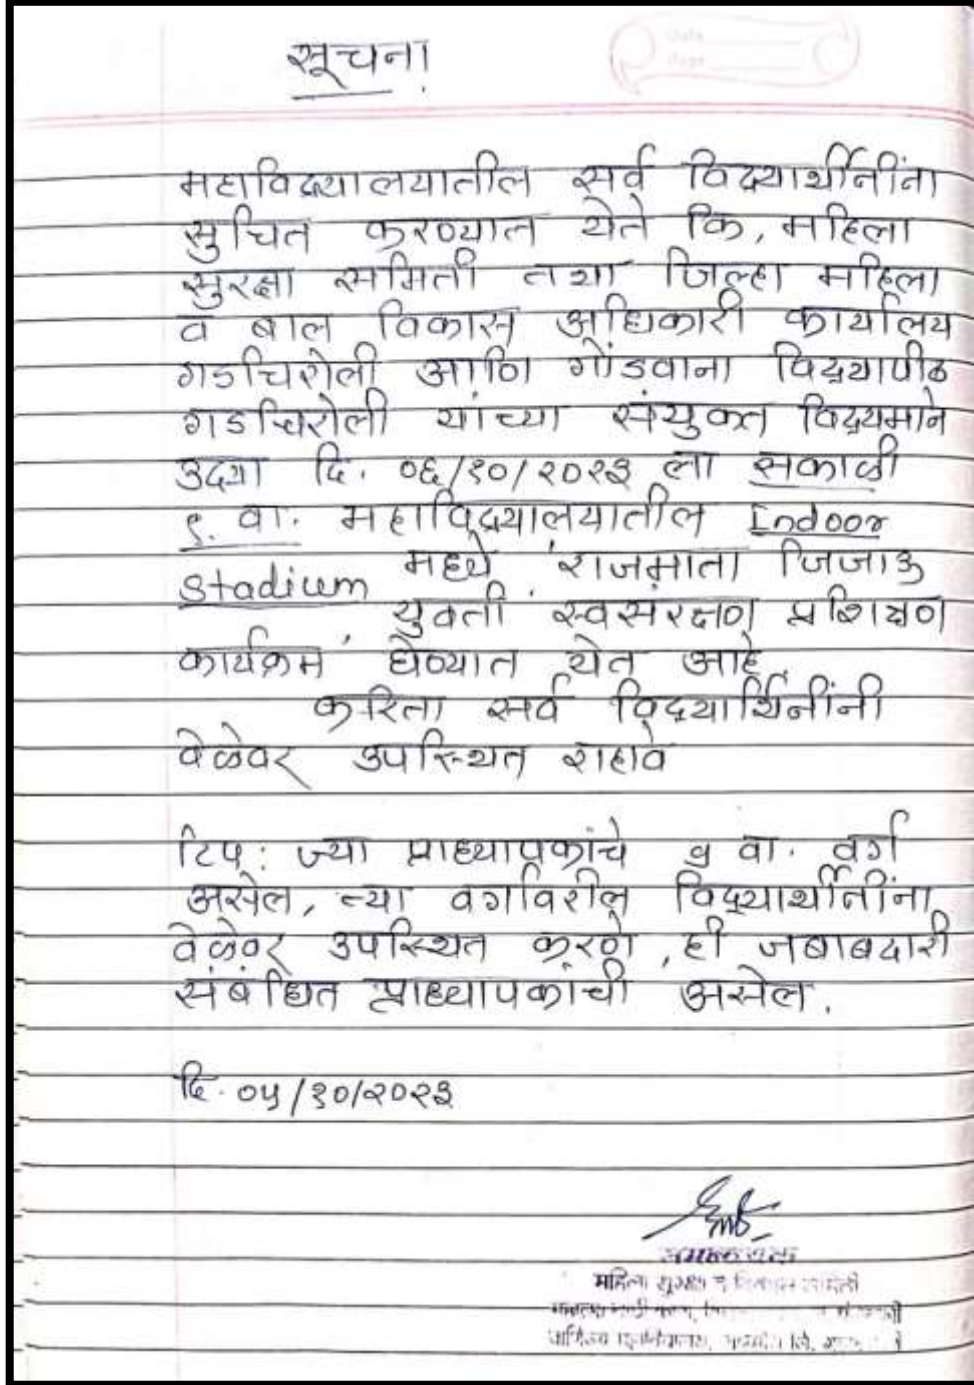 सूचना
महाविद्यालयातील सर्व विद्यार्थीनींना
सुचित करण्यात येते कि, महिला
सुरक्षा समिती तथा जिल्हा महिला
व बाल विकास अधिकारी कार्यालय
गडचिरोली आणि गोंडवाना विद्यापीठ
गडचिरोली यांच्या संयुक्त विद्यमाने
उद्या दि. ०६/१०/२०२३ ला सकाळी
९. वा. महाविद्यालयातील Indoor
Stadium मध्ये 'राजमाता जिजाऊ
युवती स्वसंरक्षण प्रशिक्षण
कार्यक्रम' घेण्यात येत आहे.
करिता सर्व विद्यार्थिनींनी
वेळेवर उपस्थित राहावे
टिप: ज्या प्राध्यापकांचे ९ वा. वर्ग
असेल, त्या वर्गावरील विद्यार्थीनींना
वेळेवर उपस्थित करणे, ही जबाबदारी
संबंधित प्राध्यापकांची असेल.
दि. ०५/१०/२०२३
महिला सुरक्षा व